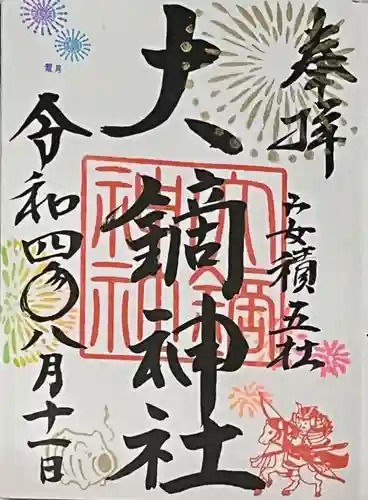 奉拝
安積五社
大鏑神社
大鏑
神社
令和四年八月十一日